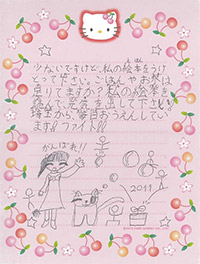 少ないですけど、私の絵本をうけ
とって下さい。ごはんやお水は
足りてますか？私の絵本を
読んで、元気を出して下さい。
埼玉から、毎日おうえんしてい
ます!!ファイト!!
がんばれ!!
2011